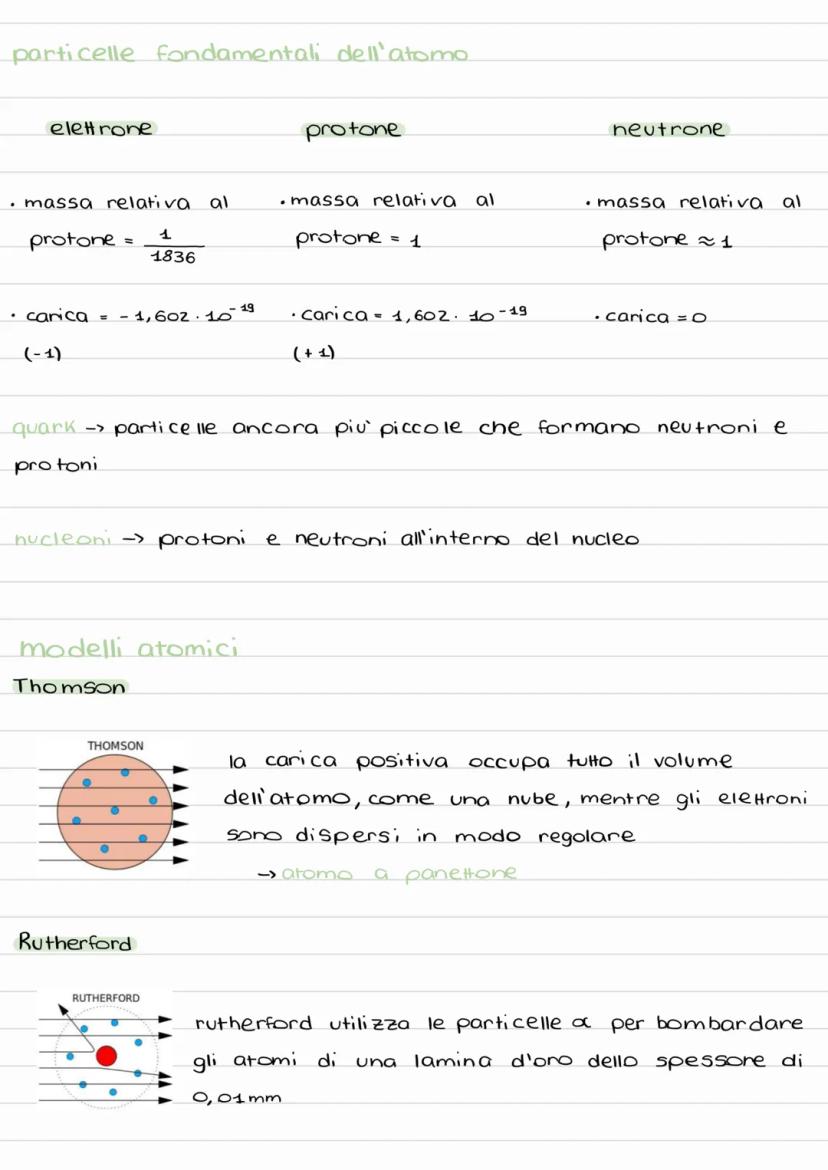 particelle fondamentali dell'atomo
elettrone protone neutrone
· massa relativa al · massa relativa al · massa relativa al
protone = 1/1836 protone = 1 protone ≈ 1
· carica = - 1,602 · 10⁻¹⁹ · carica = 1,602 · 10⁻¹⁹ · carica = 0
(-1) (+1)
quark -> particelle ancora piu' piccole che formano neutroni e
protoni
nucleoni -> protoni e neutroni all'interno del nucleo
modelli atomici
Thomson
THOMSON
la carica positiva occupa tutto il volume
dell'atomo, come una nube, mentre gli elettroni
sono dispersi in modo regolare
-> atomo a panettone
Rutherford
RUTHERFORD
rutherford utilizza le particelle α per bombardare
gli atomi di una lamina d'oro dello spessore di
0,01mm